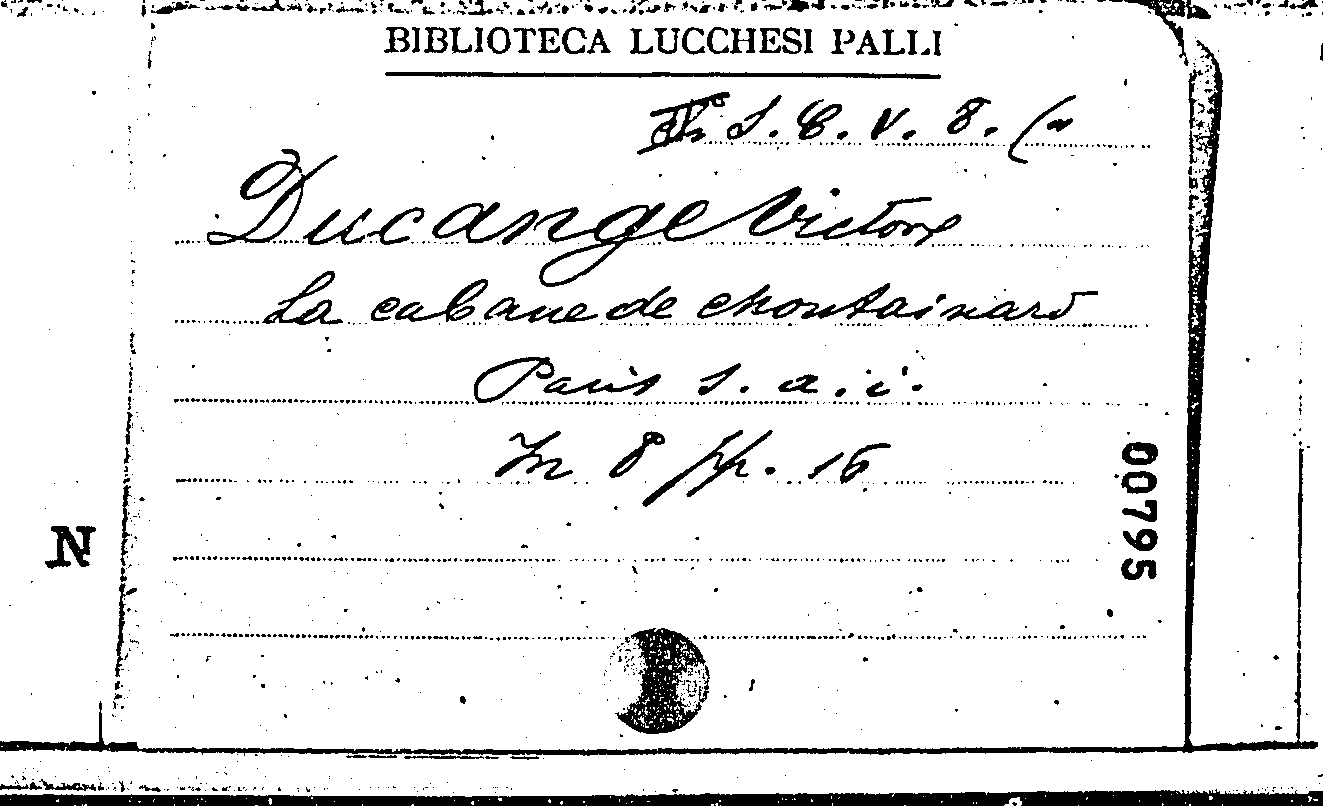 BIBLIOTECA LUCCHESI PALLI
S. C. V. 8. (a
Ducange Victor
La cabane de Montainard
Paris s. a. i.
In 8 pp. 16
N
00795